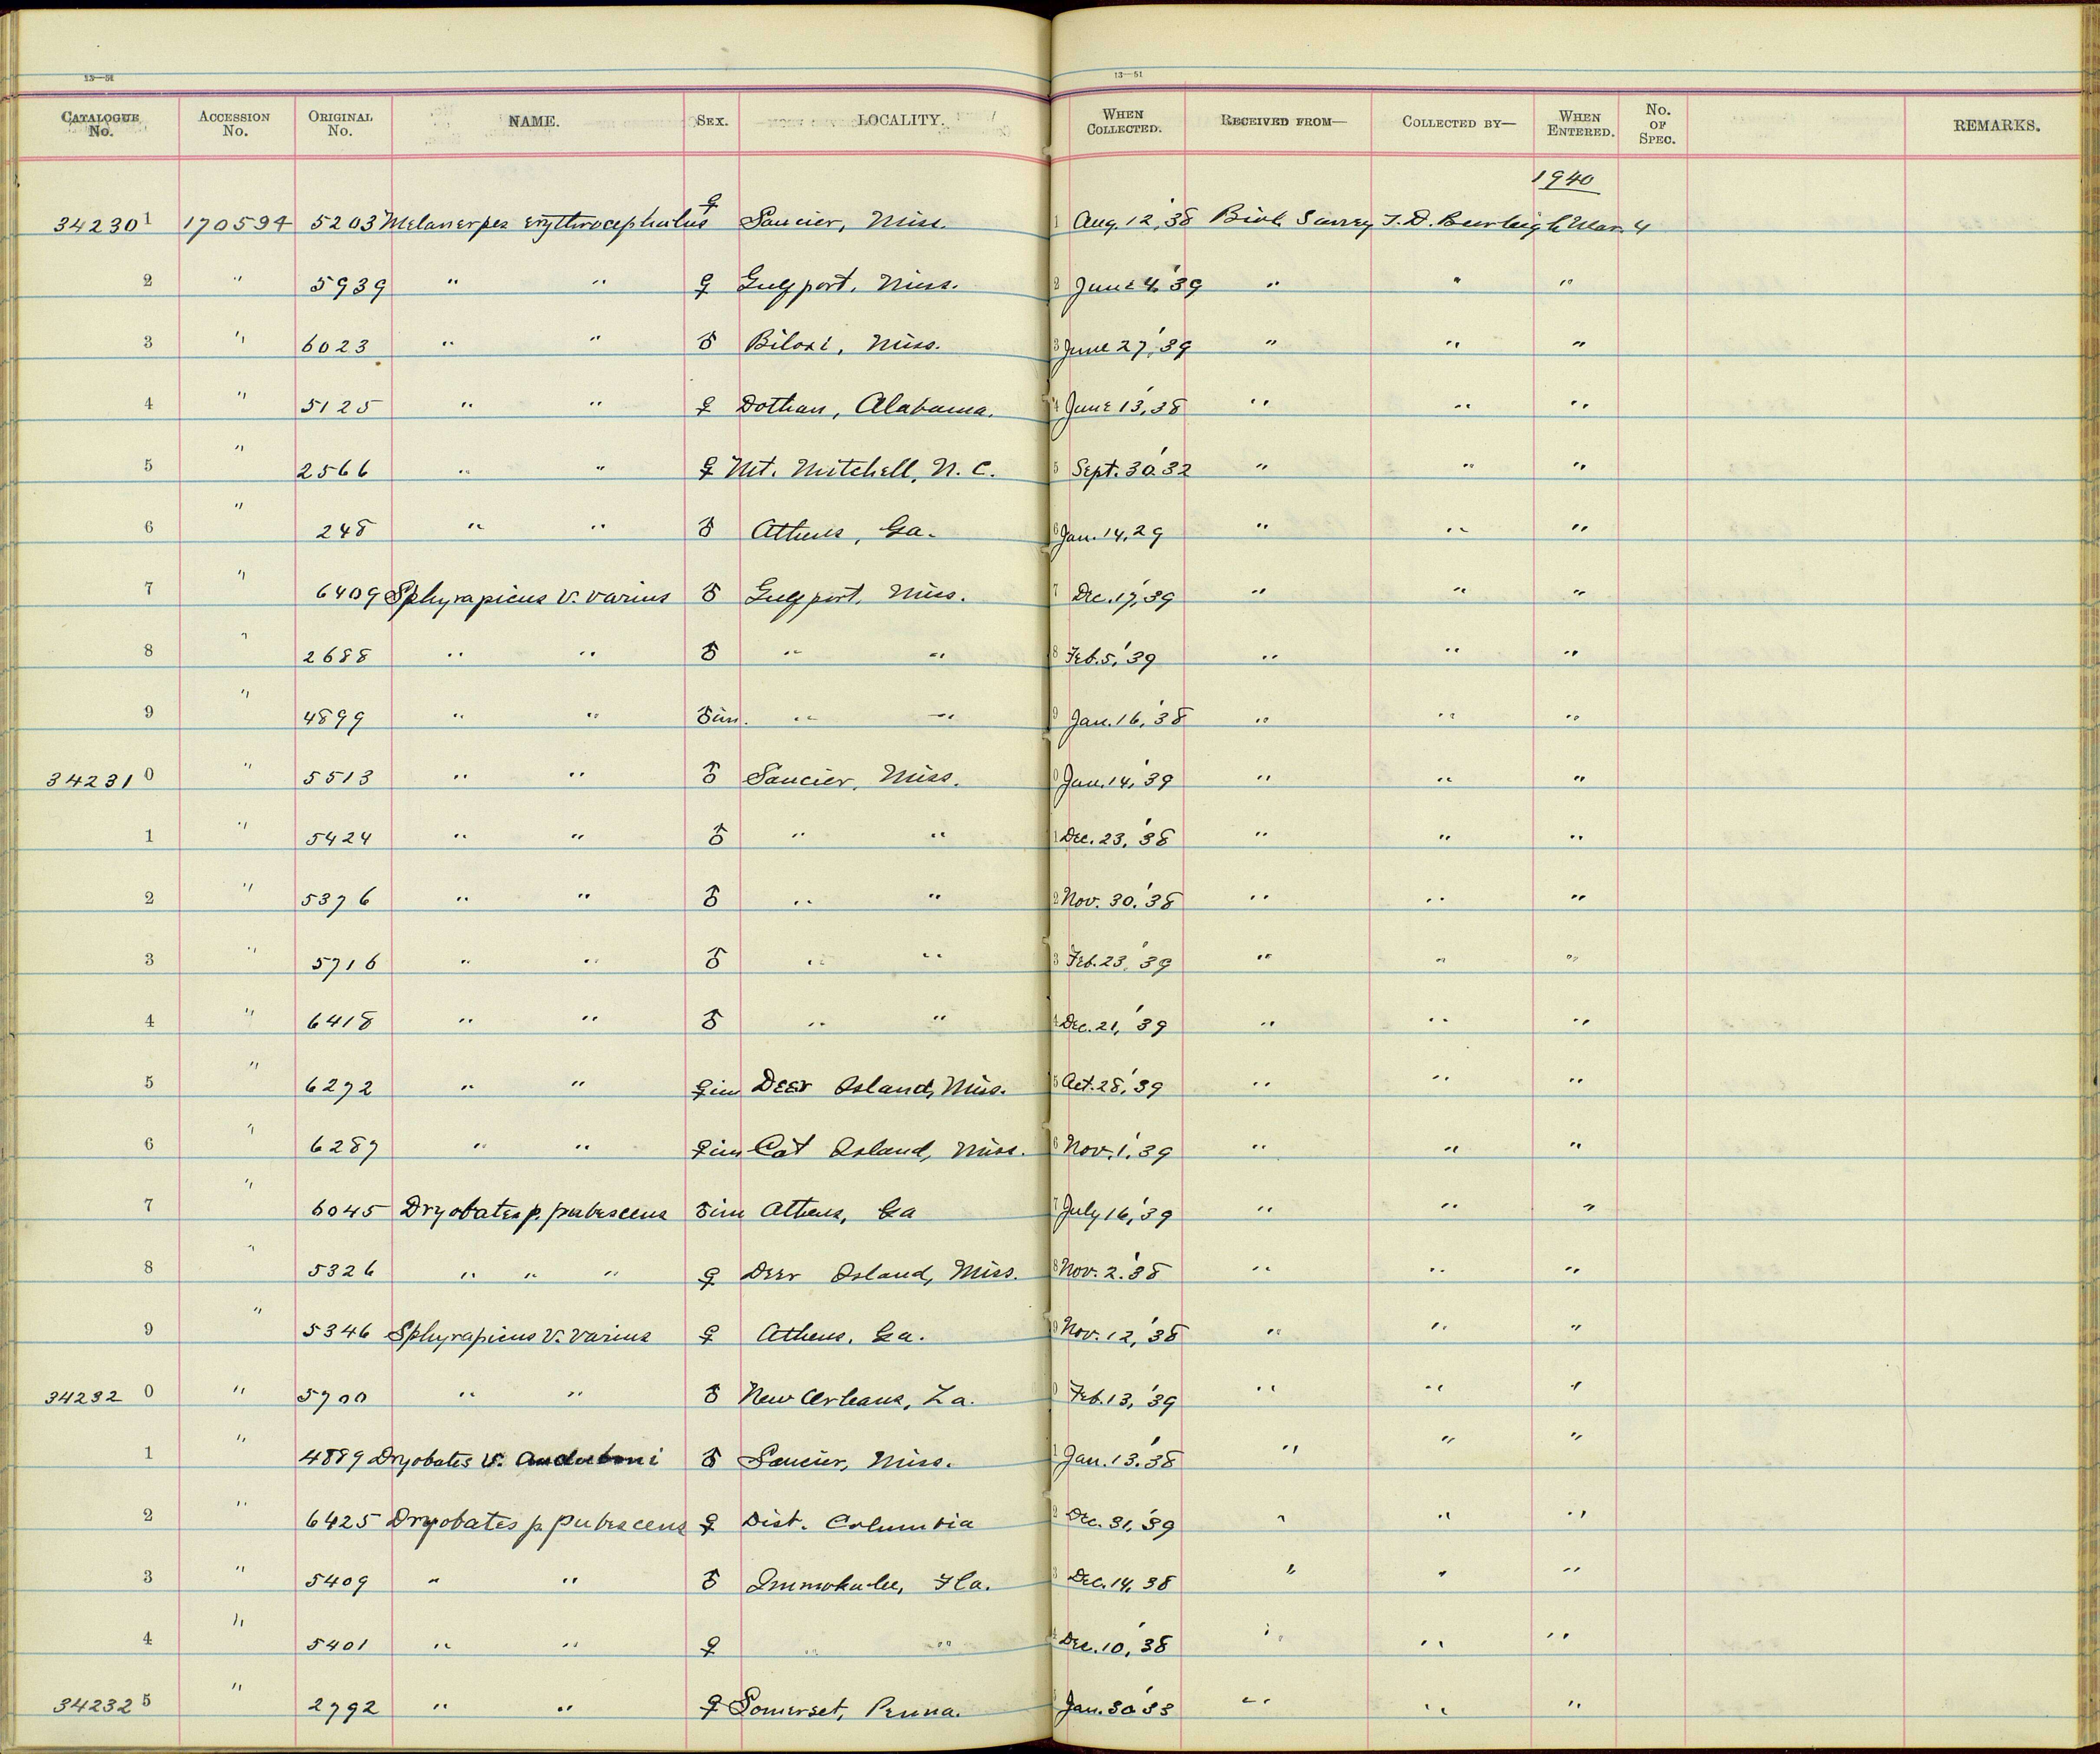 13—51 13—51
CATALOGUE No. ACCESSION No. ORIGINAL No. NAME. SEX. LOCALITY. WHEN COLLECTED. RECEIVED FROM— COLLECTED BY— WHEN ENTERED. No. OF SPEC. REMARKS.
1940
342301 170594 5203 Melanerpes erythrocephalus ♀ Saucier, Miss. 1 Aug. 12, '38 Biol. Survey T. D. Burleigh Mar. 4
2 " 5939 " " ♀ Gulfport, Miss. June 4, '39 " " "
3 " 6023 " " ♂ Biloxi, Miss. 3 June 27, '39 " " "
4 " 5125 " " ♀ Dothan, Alabama. 4 June 13, '38 " " "
5 " 2566 " " ♀ Mt. Mitchell, N. C. 5 Sept. 30 '32 " " "
6 " 248 " " ♂ Athens, Ga. 6 Jan. 14, 29 " " "
7 " 6409 Sphyrapicus v. varius ♂ Gulfport, Miss. 7 Dec. 17, '39 " " "
8 " 2688 " " ♂ " " 8 Feb. 5, '39 " " "
9 " 4899 " " ♂ im. " " 9 Jan. 16, '38 " " "
342310 " 5513 " " ♂ Saucier, Miss. 0 Jan. 14, '39 " " "
1 " 5424 " " ♂ " " 1 Dec. 23, '38 " " "
2 " 5376 " " ♂ " " 2 Nov. 30, '38 " " "
3 " 5716 " " ♂ " " 3 Feb. 23, '39 " " "
4 " 6418 " " ♂ " " 4 Dec. 21, '39 " " "
5 " 6272 " " ♀ im Deer Island, Miss. 5 Oct. 28, '39 " " "
6 " 6287 " " ♀ im Cat Island, Miss. 6 Nov. 1, '39 " " "
7 " 6045 Dryobates p. pubescens ♂ im Athens, Ga 7 July 16, '39 " " "
8 " 5326 " " " ♀ Deer Island, Miss. 8 Nov. 2, '38 " " "
9 " 5346 Sphyrapicus v. varius ♀ Athens, Ga. 9 Nov. 12, '38 " " "
342320 " 5700 " " ♂ New Orleans, La. 0 Feb. 13, '39 " " "
1 " 4889 Dryobates v. auduboni ♂ Saucier, Miss. 1 Jan. 13, '38 " " "
2 " 6425 Dryobates p. pubescens ♀ Dist. Columbia 2 Dec. 31, '39 " " "
3 " 5409 " " ♂ Immokalee, Fla. 3 Dec. 14, 38 " " "
4 " 5401 " " ♀ " " Dec. 10, '38 " " "
342325 " 2792 " " ♀ Somerset, Penna. Jan. 30 '33 " " "